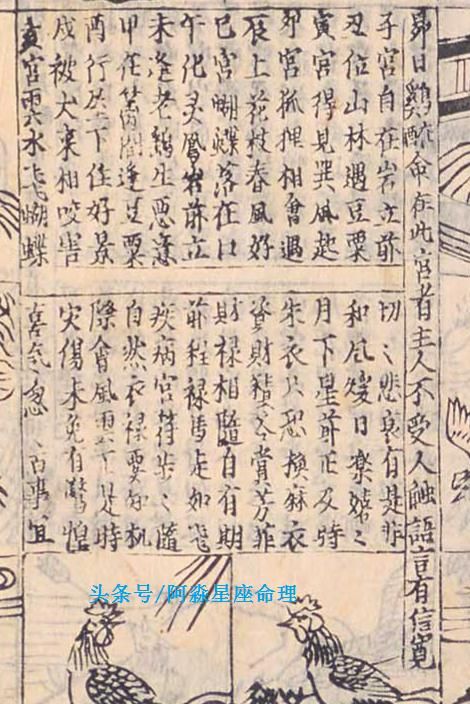 昴日鷄酷命在此宮者主人不受人觸語言有信寬
子宮自在岩立前
切々悲哀有是非
丑位山林遇豆粟
和风煖日樂嬉々
寅宮得見巽風起
月下星前正及時
卯宮狐狸相會遇
朱衣只恐換麻衣
辰上花枝春風好
資財積谷賞芳菲
巳宮蝴蝶落在口
財禄相隨自有期
午化灵鳳岩前立
前程禄馬走如飛
未逢老鵶生惡意
疾病宮符步々隨
甲在篱圍逢豆粟
自然衣禄要知机
酉行岩下佳好景
際會風雲正是時
戌被犬来相咬害
灾傷未免有驚惶
亥宮雲水飛蝴蝶
喜气忽々百事宜
头条号/阿淼星座命理